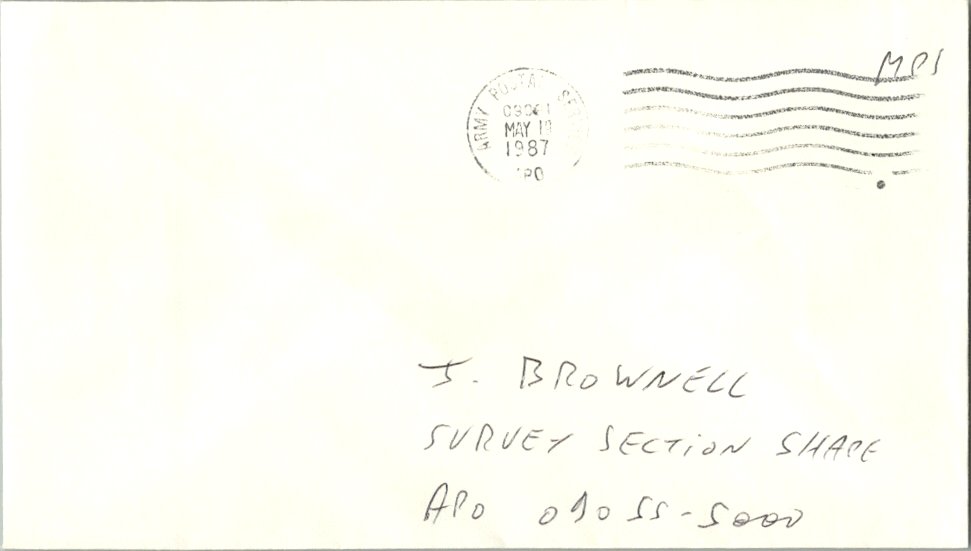 MPS
ARMY POSTAL SERVICE
09061
MAY 19
1987
APO
J. BROWNELL
SURVEY SECTION SHAPE
APO 09055-5000